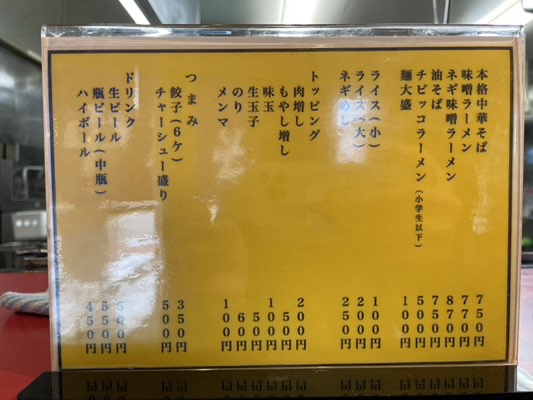 本格中華そば 750円
味噌ラーメン 770円
ネギ味噌ラーメン 870円
油そば 750円
チビッコラーメン(小学生以下) 500円
麺大盛 100円
ライス(小) 100円
ライス(大) 200円
ネギめし 250円
トッピング
肉増し 200円
もやし増し 50円
味玉 100円
生玉子 50円
のり 60円
メンマ 100円
つまみ
餃子(6ケ) 350円
チャーシュー盛り 500円
ドリンク
生ビール 500円
瓶ビール(中瓶) 550円
ハイボール 450円